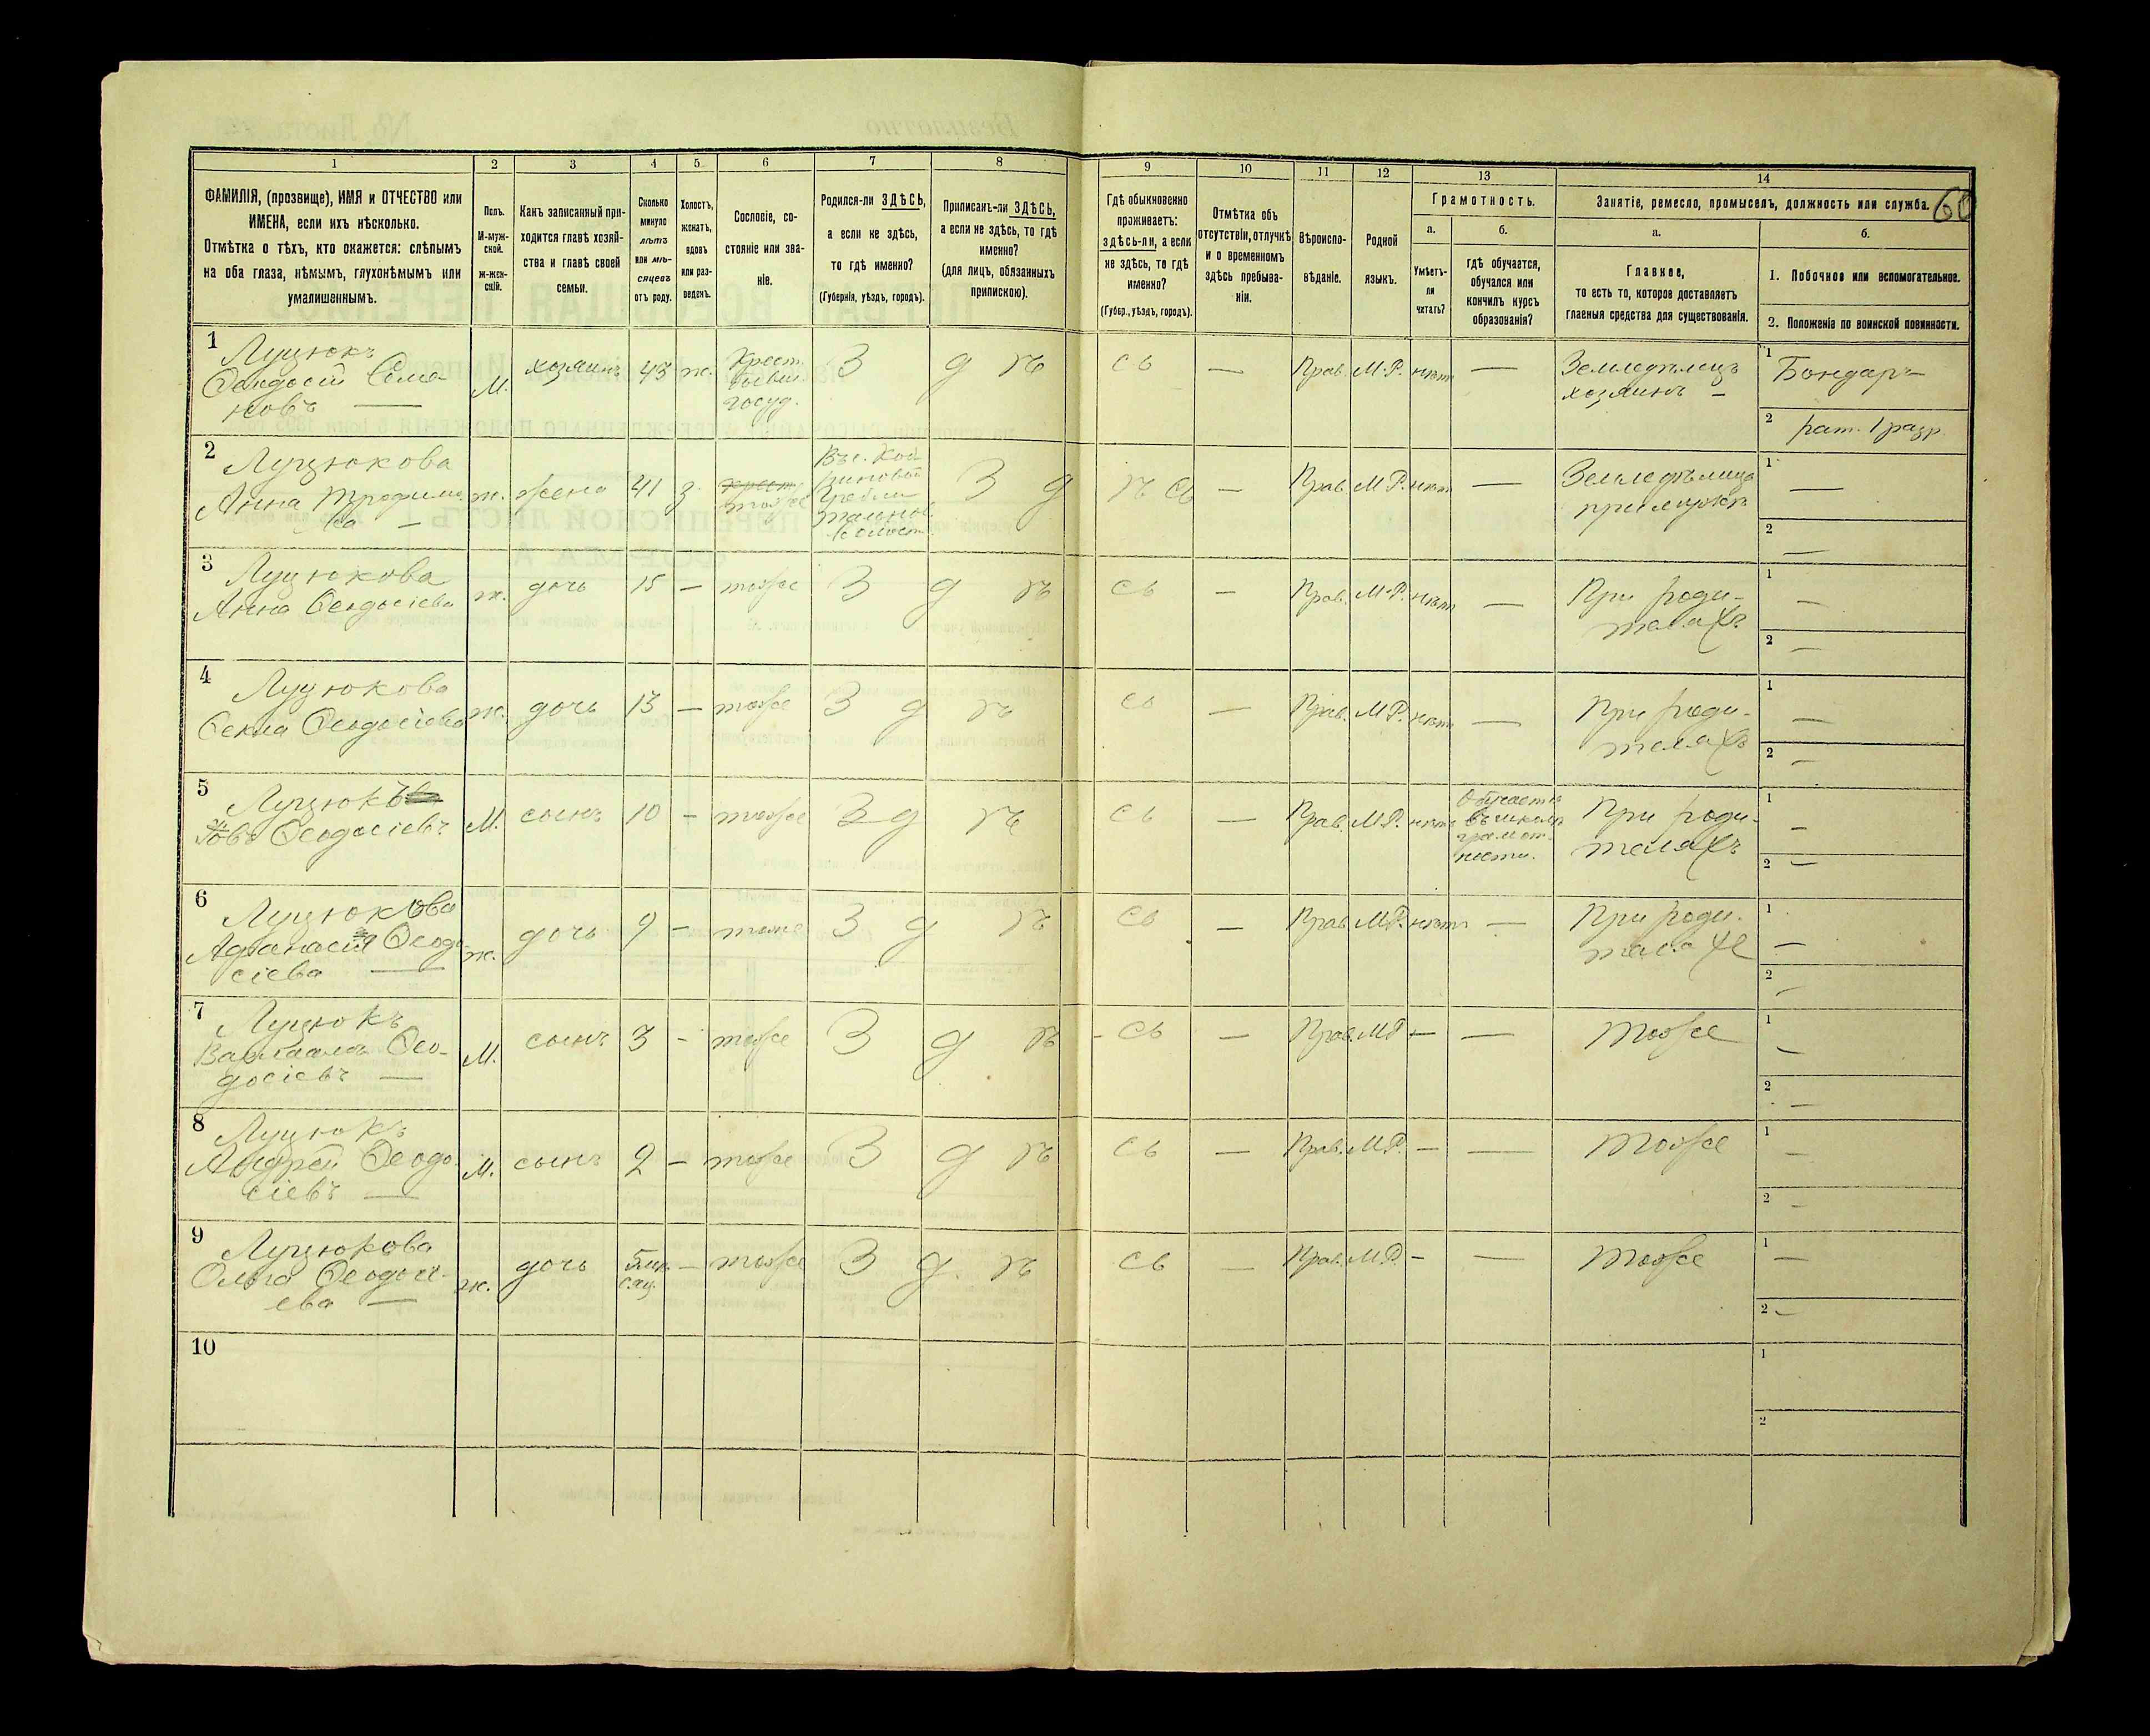 60
1
2
3
4
5
6
7
8
9
10
11
12
13
14
ФАМИЛІЯ, (прозвище), ИМЯ и ОТЧЕСТВО или
ИМЕНА, если ихъ нѣсколько.
Отмѣтка о тѣхъ, кто окажется: слѣпымъ
на оба глаза, нѣмымъ, глухонѣмымъ или
умалишеннымъ.
Полъ.
М-муж-
ской.
ж-жен-
скій.
Какъ записанный при-
ходится главѣ хозяй-
ства и главѣ своей
семьи.
Сколько
минуло
лѣтъ
или мѣ-
сяцевъ
отъ роду.
Холостъ,
женатъ,
вдовъ
или раз-
веденъ.
Сословіе, со-
стояніе или зва-
ніе.
Родился-ли ЗДѢСЬ,
а если не здѣсь,
то гдѣ именно?
(Губернія, уѣздъ, городъ).
Приписанъ-ли ЗДѢСЬ,
а если не здѣсь, то гдѣ
именно?
(для лицъ, обязанныхъ
припискою).
Гдѣ обыкновенно
проживаетъ:
здѣсь-ли, а если
не здѣсь, то гдѣ
именно?
(Губер., уѣздъ, городъ).
Отмѣтка объ
отсутствіи, отлучкѣ
и о временномъ
здѣсь пребыва-
ніи.
Вѣроиспо-
вѣданіе.
Родной
языкъ.
Грамотность.
а.
Умѣетъ-
ли
читать?
б.
гдѣ обучается,
обучался или
кончилъ курсъ
образованія?
Занятіе, ремесло, промыселъ, должность или служба.
а.
Главное,
то есть то, которое доставляетъ
главныя средства для существованія.
б.
1. Побочное или вспомогательное.
2. Положеніе по воинской повинности.
1
Луцюкъ
Ѳеодосій Семе-
новъ —
М.
хозяинъ
43
ж.
Крест.
бывш.
госуд.
З д ѣ сь
—
Прав.
М.Р.
нѣтъ
—
Земледѣлецъ
хозяинъ —
1 Бондарь
2 рат. 1 разр.
2
Луцюкова
Анна Трофимо
ва —
ж.
жена
41
з.
тоже
З д ѣ сь
—
Прав.
М.Р.
нѣтъ
—
Земледѣлица
при мужѣ
1 —
2 —
3
Луцюкова
Анна Ѳеодосіева
ж.
дочь
15
—
тоже
З д ѣ сь
—
Прав.
М.Р.
нѣтъ
—
При роди-
теляхъ
1 —
2 —
4
Луцюкова
Ѳекла Ѳеодосіева
ж.
дочь
13
—
тоже
З д ѣ сь
—
Прав.
М.Р.
нѣтъ
—
При роди-
теляхъ
1 —
2 —
5
Луцюкъ
Ѳеодосіевъ
М.
сынъ
10
—
тоже
З д ѣ сь
Прав.
М.Р.
нѣтъ
Обучается
въ школѣ
грамот-
ности.
При роди-
теляхъ
1 —
2 —
6
Луцюкова
Афанасія Ѳеодо-
сіева —
ж.
дочь
9
—
тоже
З д ѣ сь
—
Прав.
М.Р.
нѣтъ
—
При роди-
теляхъ
1 —
2 —
7
Луцюкъ
Ѳео-
досіевъ —
М.
сынъ
3
—
тоже
З д ѣ сь
—
Прав.
М.Р.
—
—
тоже
1 —
2 —
8
Луцюкъ
Андрей Ѳеодо-
сіевъ —
М.
сынъ
2
—
тоже
З д ѣ сь
—
Прав.
М.Р.
—
—
тоже
1 —
2 —
9
Луцюкова
Ольга Ѳеодосі-
ева —
ж.
дочь
5 мѣ-
сяц.
—
тоже
З д ѣ сь
—
Прав.
М.Р.
—
—
тоже
1 —
2 —
10
1
2